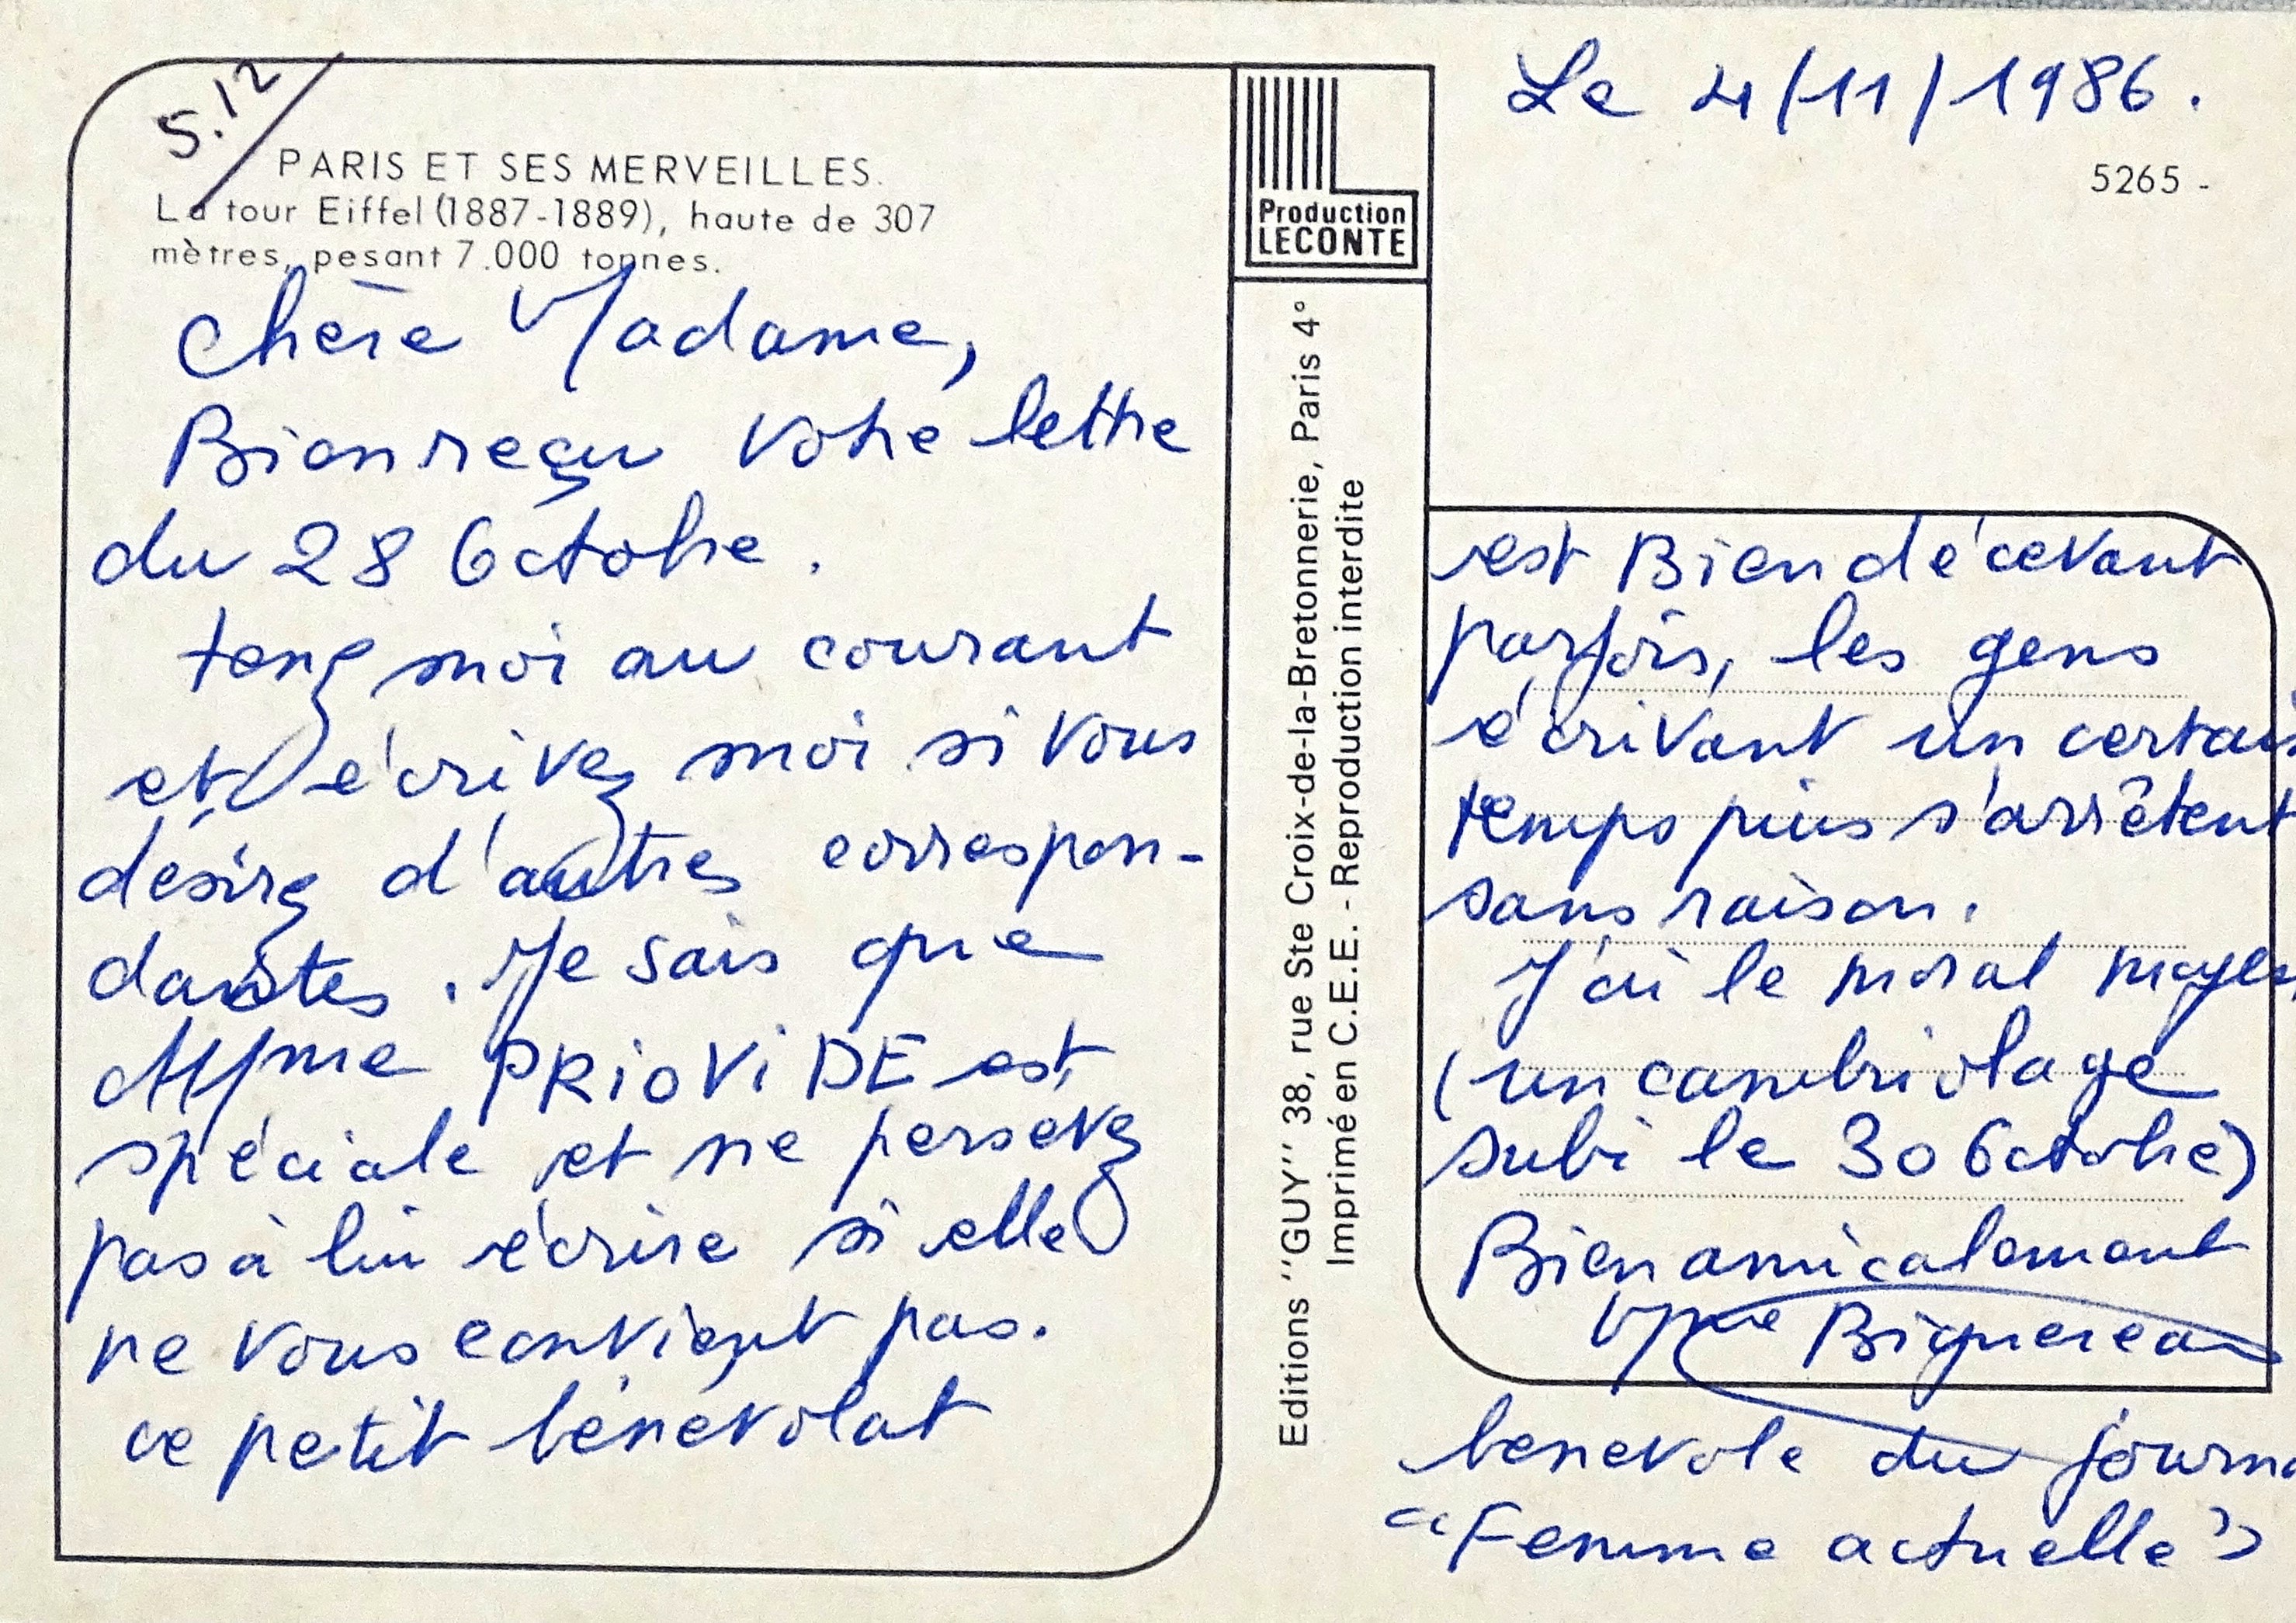 5.12
PARIS ET SES MERVEILLES.
La tour Eiffel (1887-1889), haute de 307
mètres, pesant 7.000 tonnes.
Chère Madame,
Bien reçu votre lettre
du 28 Octobre.
tenez moi au courant
et écrivez moi si vous
désirez d'autres correspon-
dantes. Je sais que
Mme PRIOVIDE est
spéciale et ne persevez
pas à lui écrire si elle
ne vous convient pas.
ce petit bénévolat
Production
LECONTE
Editions "GUY" 38, rue Ste Croix-de-la-Bretonnerie, Paris 4°
Imprimé en C.E.E. - Reproduction interdite
Le 4/11/1986.
5265 -
est Bien décevant
parfois, les gens
écrivant un certain
temps puis s'arrêtent
sans raison.
J'ai le moral moyen
(un cambriolage
subi le 30 Octobre)
Bien amicalement
Mme Biquereau
bénévole du journa
"Femme actuelle"